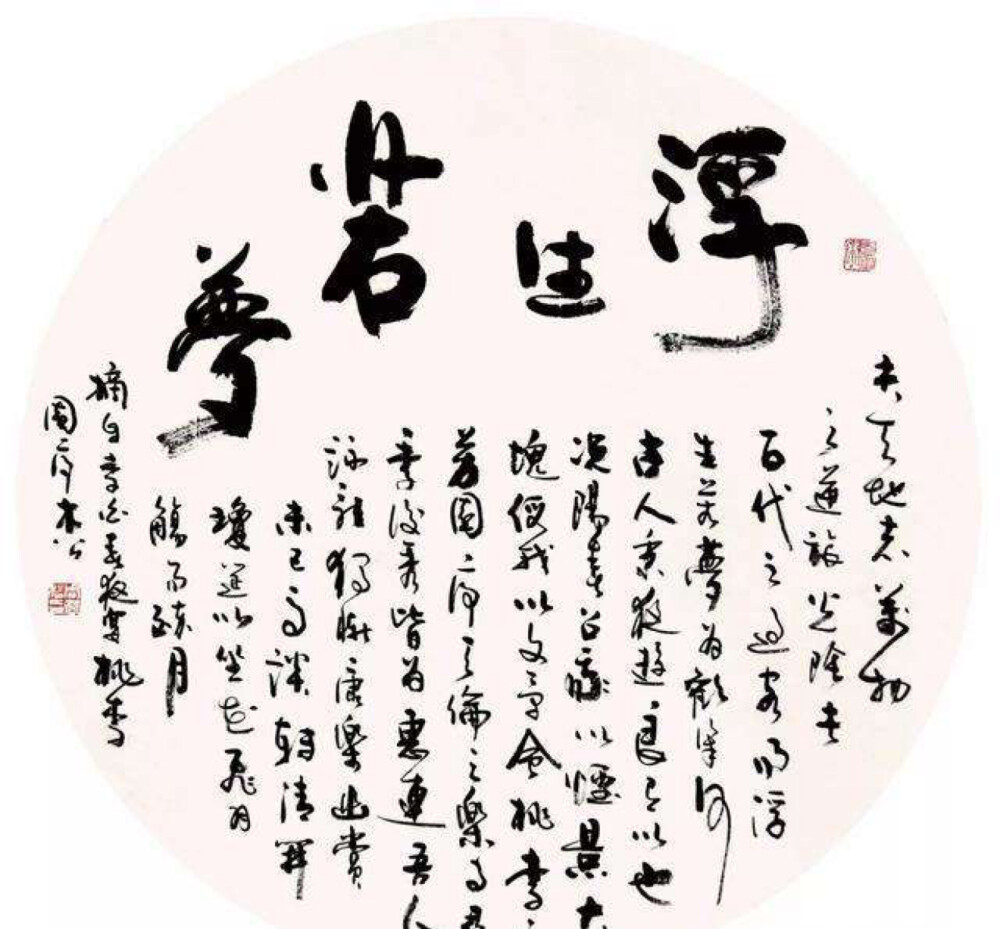 浮生若夢
夫天地者萬物
之逆旅光陰者
百代之過客而浮
生若夢為歡幾何
古人秉夜遊良有以也
況陽春召我以煙景大
塊假我以文章會桃李之
芳園序天倫之樂事
季俊秀皆為惠連吾人
詠歌獨慚康樂幽賞
未已高談轉清開
瓊筵以坐花飛羽
觴而醉月
摘自李白春夜宴桃李
園序木公